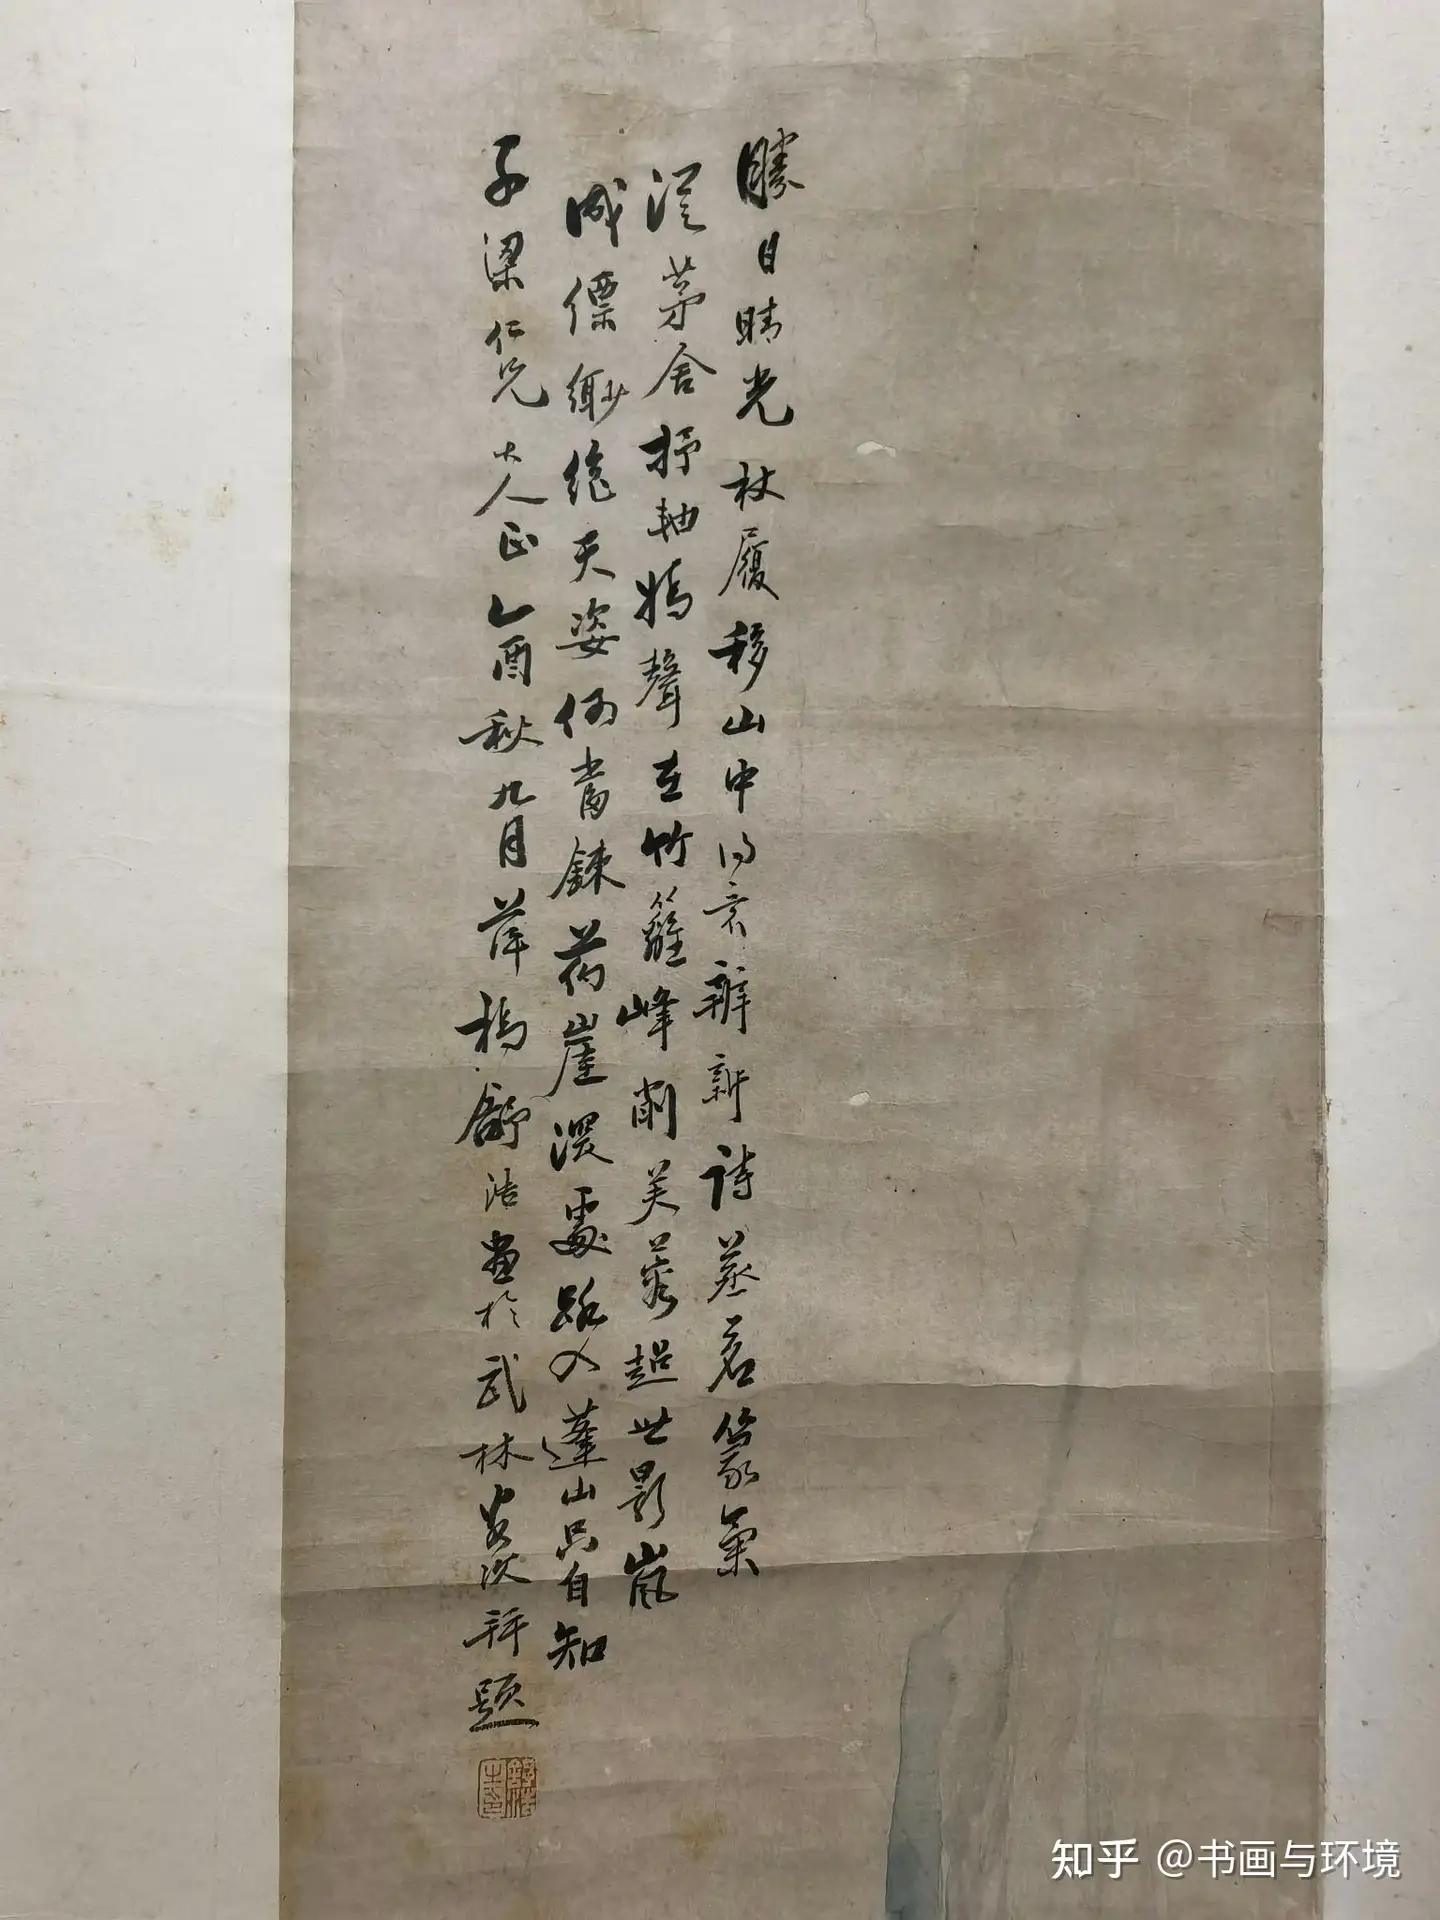 勝日晴光杖履移山中得意辦新詩蒸茗篆氣
從茅舍抒軸嬌聲在竹籬峰削芙蓉超世影嵐
成縹緲絕天姿何當鍊药崖深處路入蓬山只自知
子梁仁兄大人正乙酉秋九月萍橋舒浩画於武林客次并題
知乎 @书画与环境